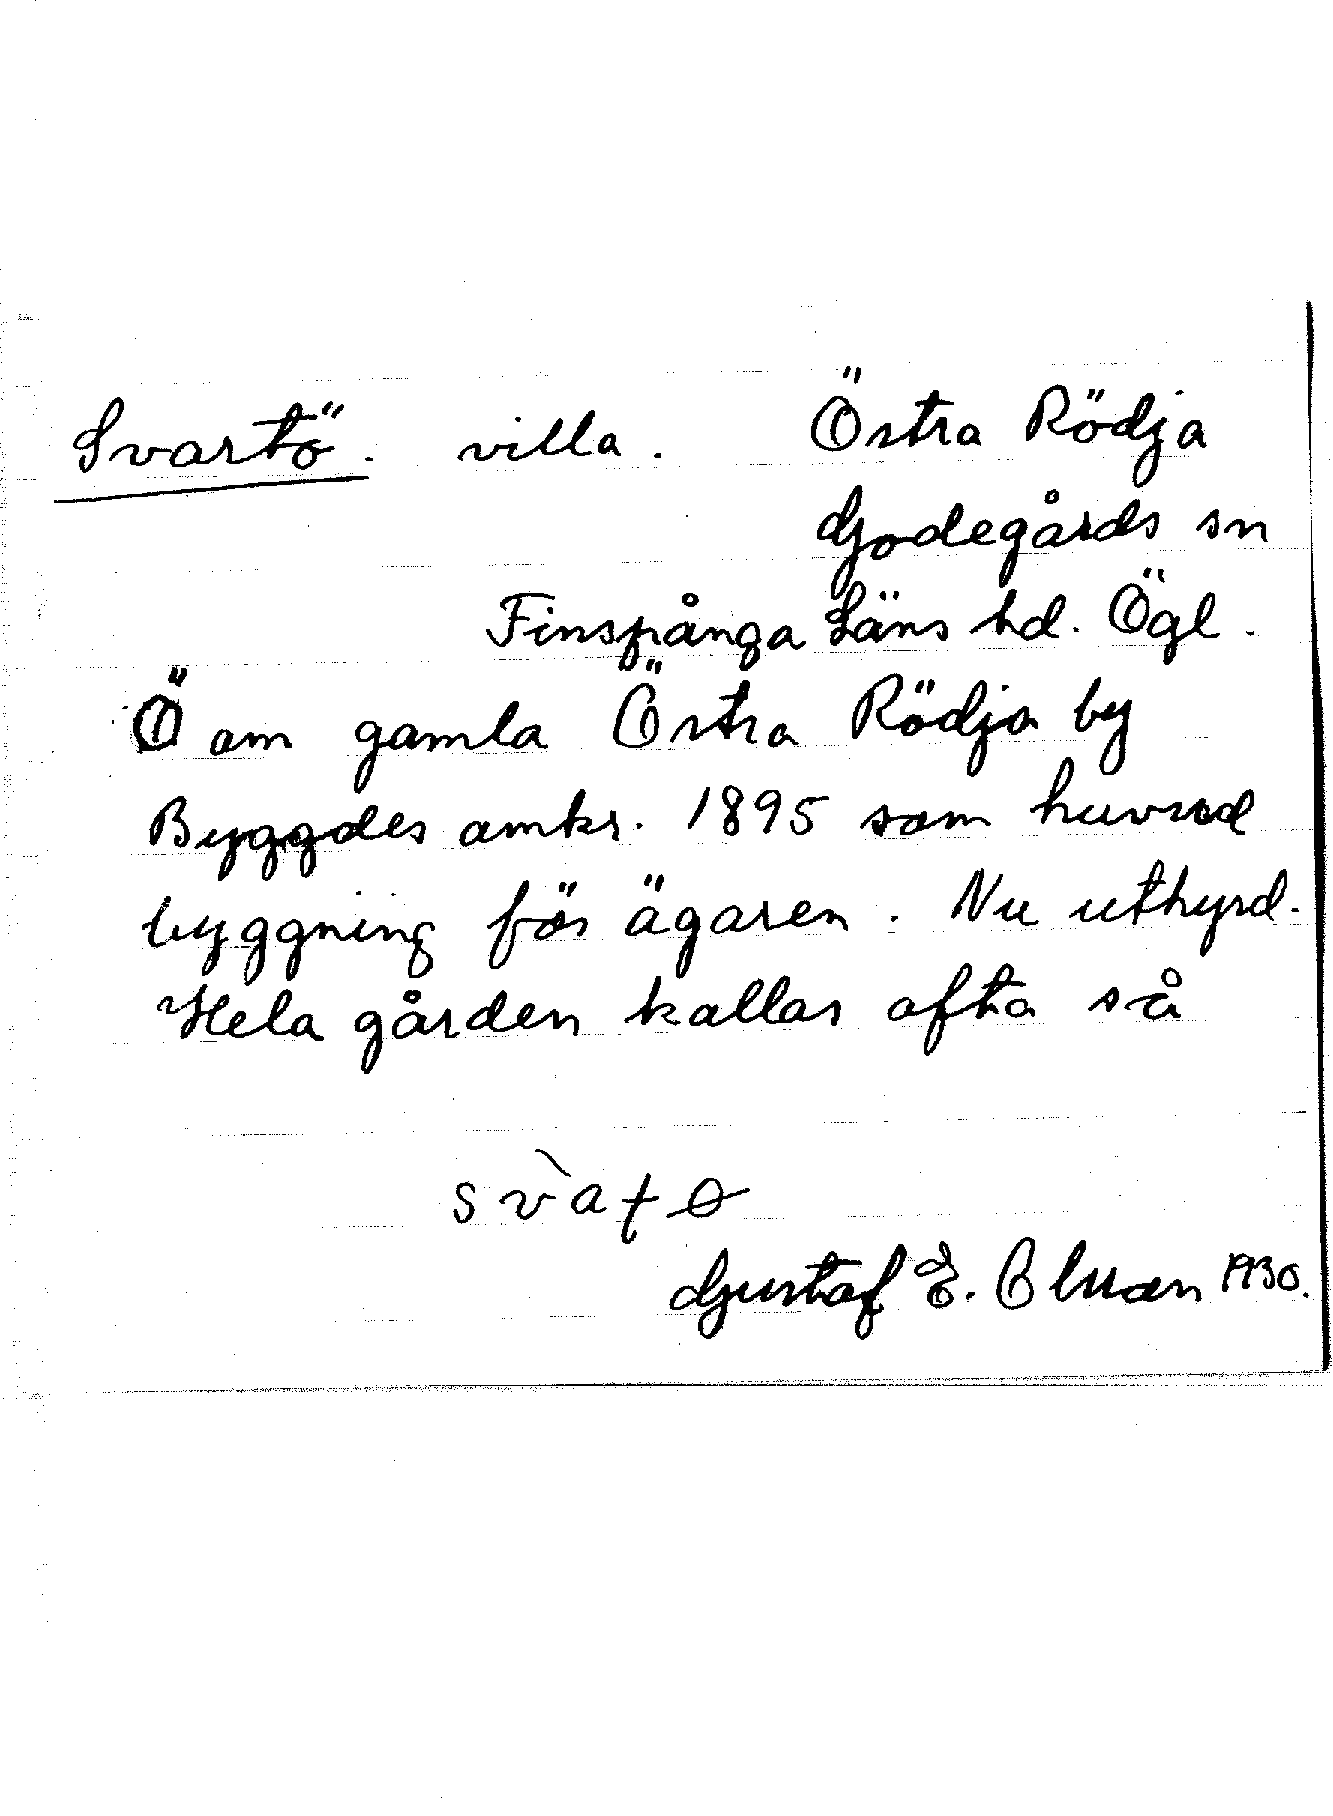 Svartö. villa. Östra Rödja
Godegårds sn
Finspånga Läns hd. Ögl.
Ö om gamla Östra Rödja by
Byggdes omkr. 1895 som huvud
byggning för ägaren. Nu uthyrd.
Hela gården kallas ofta så
svàtɵ
Gustaf E. 1930.